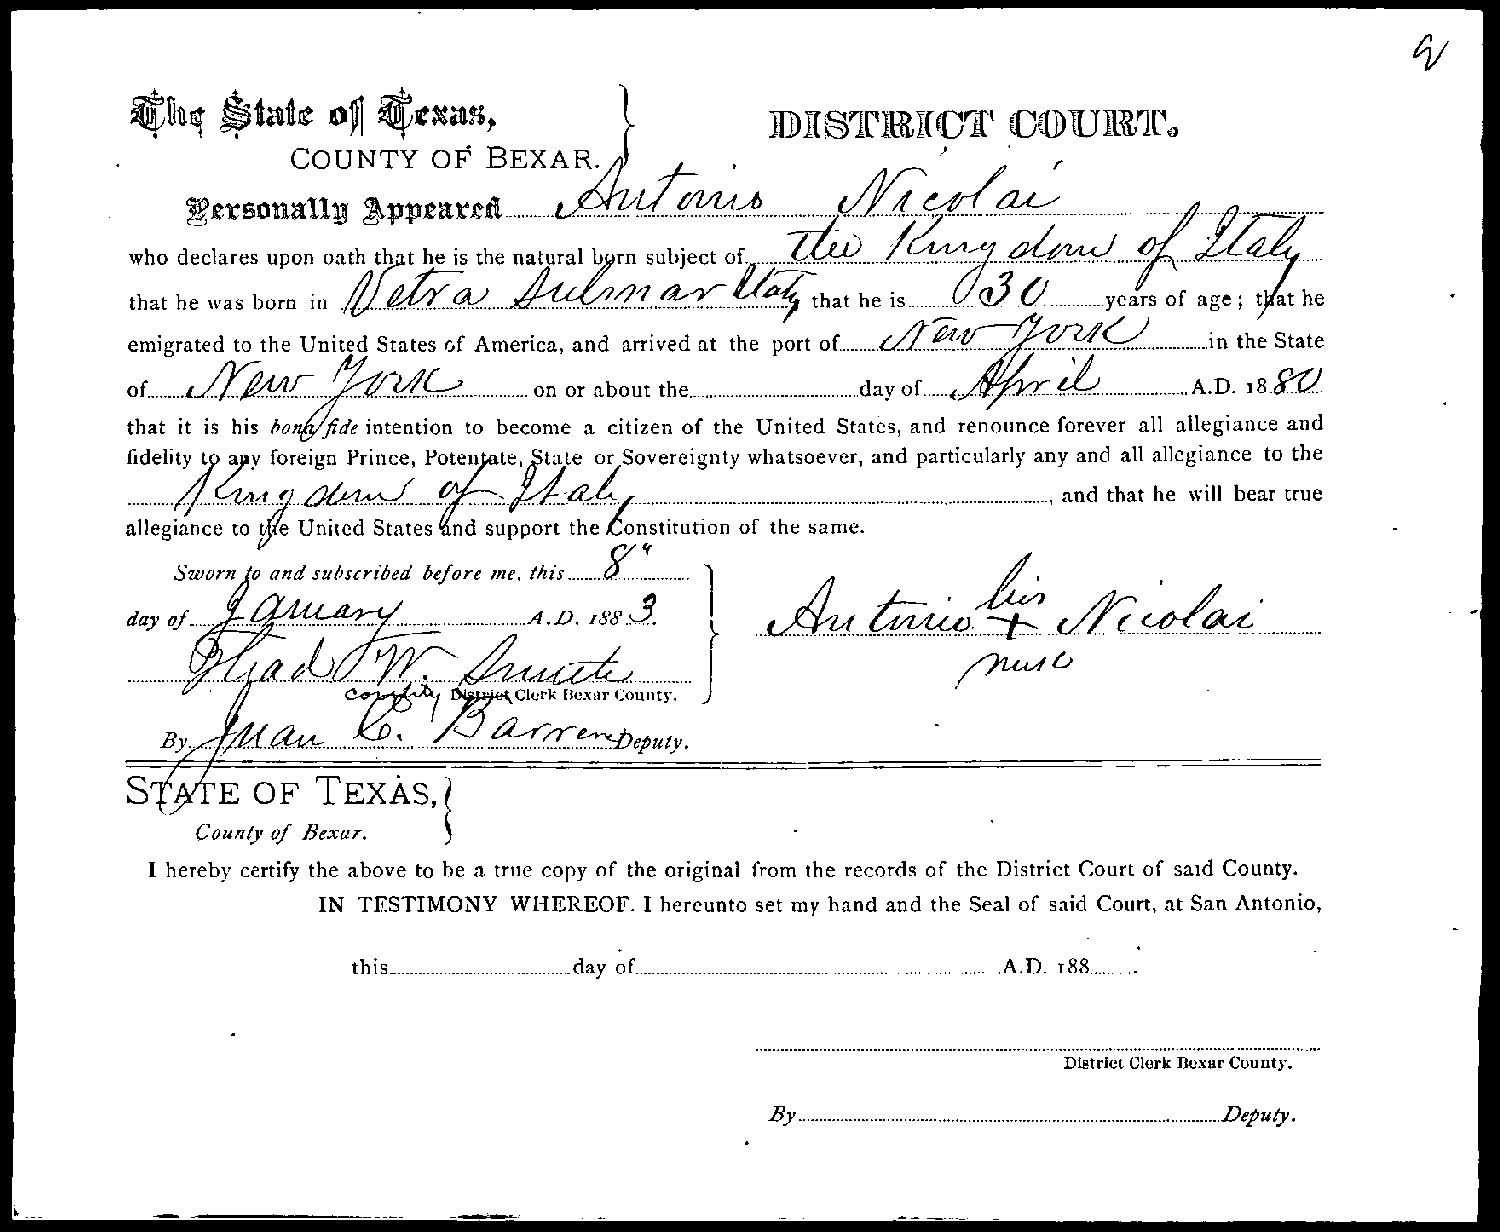 The State of Texas, DISTRICT COURT.
COUNTY OF BEXAR.
Personally Appeared Antonio Nicolai
who declares upon oath that he is the natural born subject of the Kingdom of Italy
that he was born in Vetra Sulmar Italy that he is 30 years of age; that he
emigrated to the United States of America, and arrived at the port of New York in the State
of New York on or about the day of April A.D. 1880
that it is his bona fide intention to become a citizen of the United States, and renounce forever all allegiance and
fidelity to any foreign Prince, Potentate, State or Sovereignty whatsoever, and particularly any and all allegiance to the
Kingdom of Italy, and that he will bear true
allegiance to the United States and support the Constitution of the same.
Sworn to and subscribed before me, this 8"
day of January A.D. 1883.
Antonio his + Nicolai
Thad W. Smith
County District Clerk Bexar County.
By Juan C. Barrera Deputy.
STATE OF TEXAS,
County of Bexar.
I hereby certify the above to be a true copy of the original from the records of the District Court of said County.
IN TESTIMONY WHEREOF, I hereunto set my hand and the Seal of said Court, at San Antonio,
this day of A.D. 188
District Clerk Bexar County.
By Deputy.